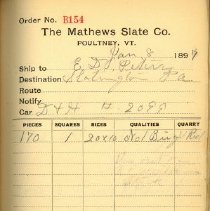 Order No. B154
The Mathews Slate Co.
POULTNEY, VT.
Jan 8 1899
Ship to E. D. Peters
Destination Slatington Pa
Route
Notify
Car D & H
PIECES SQUARES SIZES QUALITIES QUARRY
170 1 20x10 No 1